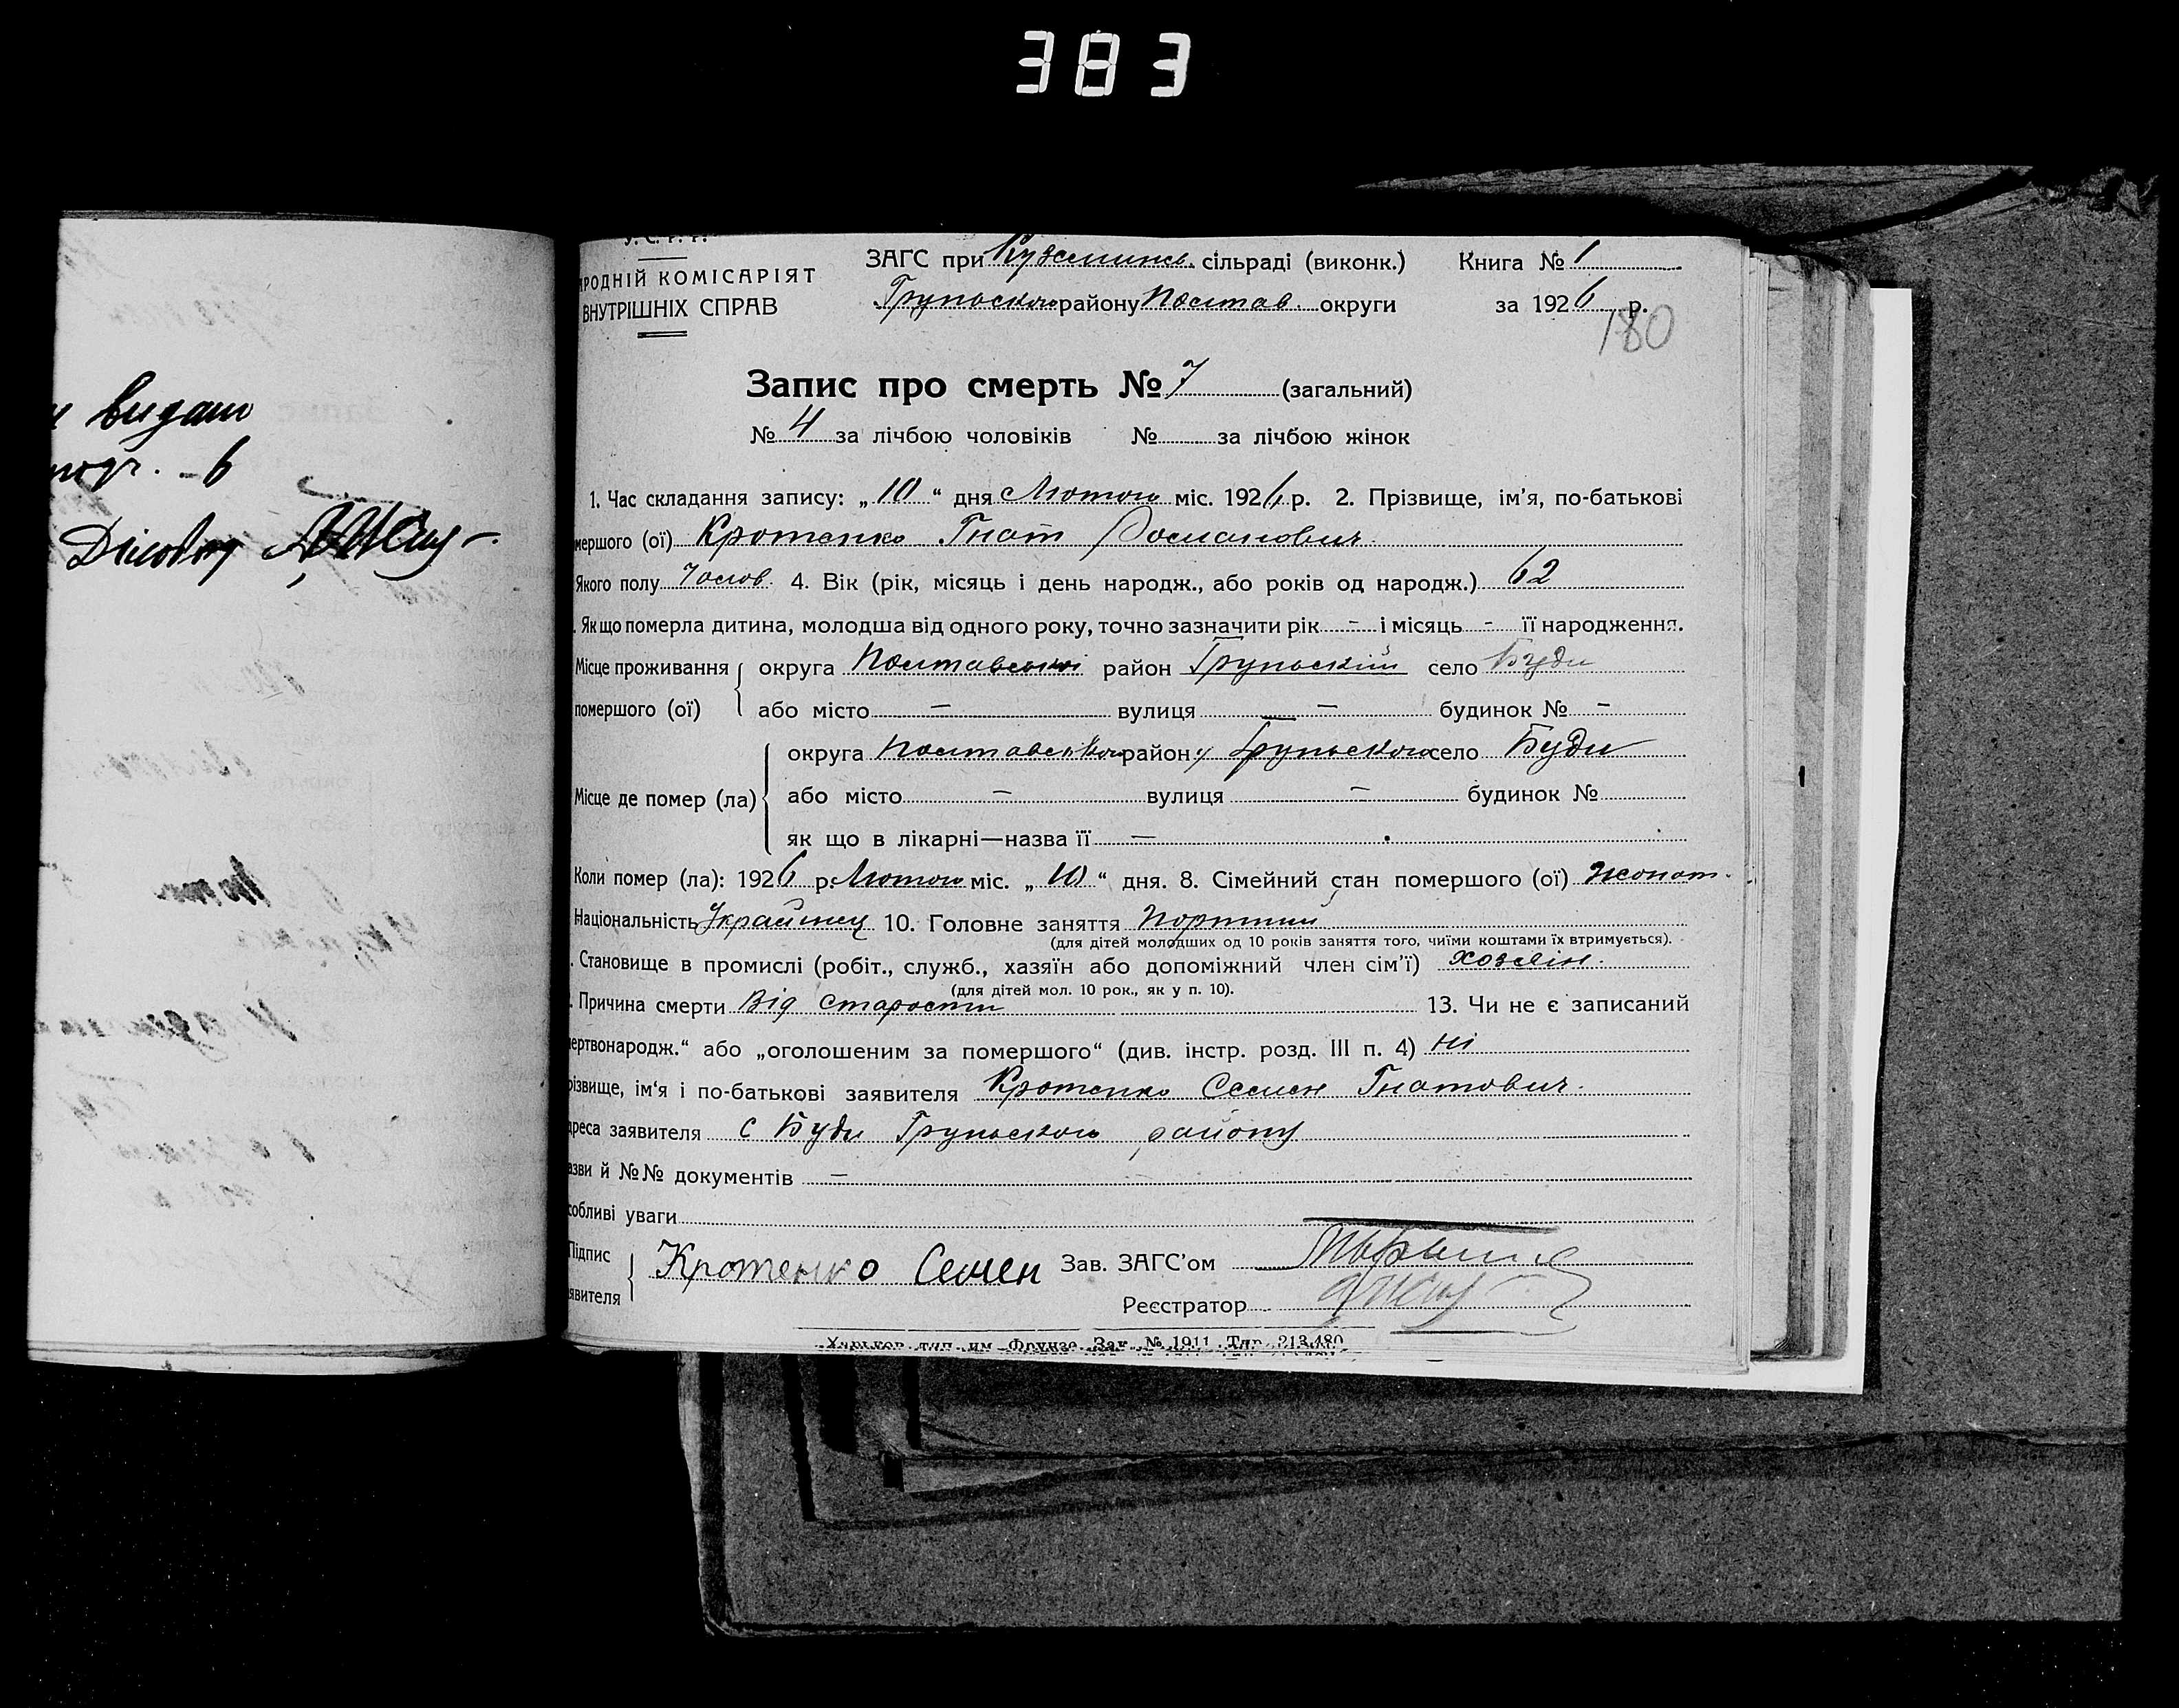 383
видати
Діловод
У. С. Р. Р.
РОДНІЙ КОМІСАРІЯТ
ВНУТРІШНІХ СПРАВ
ЗАГС при Куземинс. сільраді (виконк.) Книга № 1
Груньского району Полтав. округи за 1926 р.
180
Запис про смерть № 7 (загальний)
№ 4 за лічбою чоловіків № за лічбою жінок
1. Час складання запису: „10“ дня Лютого міс. 1926 р. 2. Прізвище, ім’я, по-батькові
мершого (ої) Кротенко Гнат Романович
Якого полу Чолов. 4. Вік (рік, місяць і день народж., або років од народж.) 62
. Якщо померла дитина, молодша від одного року, точно зазначити рік - і місяць - її народження.
Місце проживання округа Полтавської район Груньский село Буди
помершого (ої) або місто — вулиця — будинок № -
округа Полтавського району Груньского село Буди
Місце де помер (ла) або місто — вулиця — будинок №
як що в лікарні—назва її —
Коли помер (ла): 1926 р. Лютого міс. „10“ дня. 8. Сімейний стан помершого (ої) Жонат.
Національність Украінец 10. Головне заняття Портний
(для дітей молодших од 10 років заняття того, чиїми коштами їх втримується).
. Становище в промислі (робіт., служб., хазяїн або допоміжний член сім’ї) хозяін.
(для дітей мол. 10 рок., як у п. 10).
. Причина смерти Від старости 13. Чи не є записаний
ертвонародж.“ або „оголошеним за помершого“ (див. інстр. розд. III п. 4) ні
різвище, ім‘я і по-батькові заявителя Кротенко Семен Гнатович.
дреса заявителя с Буди Груньского району
азви й №№ документів —
собливі уваги
Підпис
явителя Кротенко Семен Зав. ЗАГС’ом
Реєстратор
Харьков, тип. им. Фрунзе. Зак. № 1911. Тир. 213.480